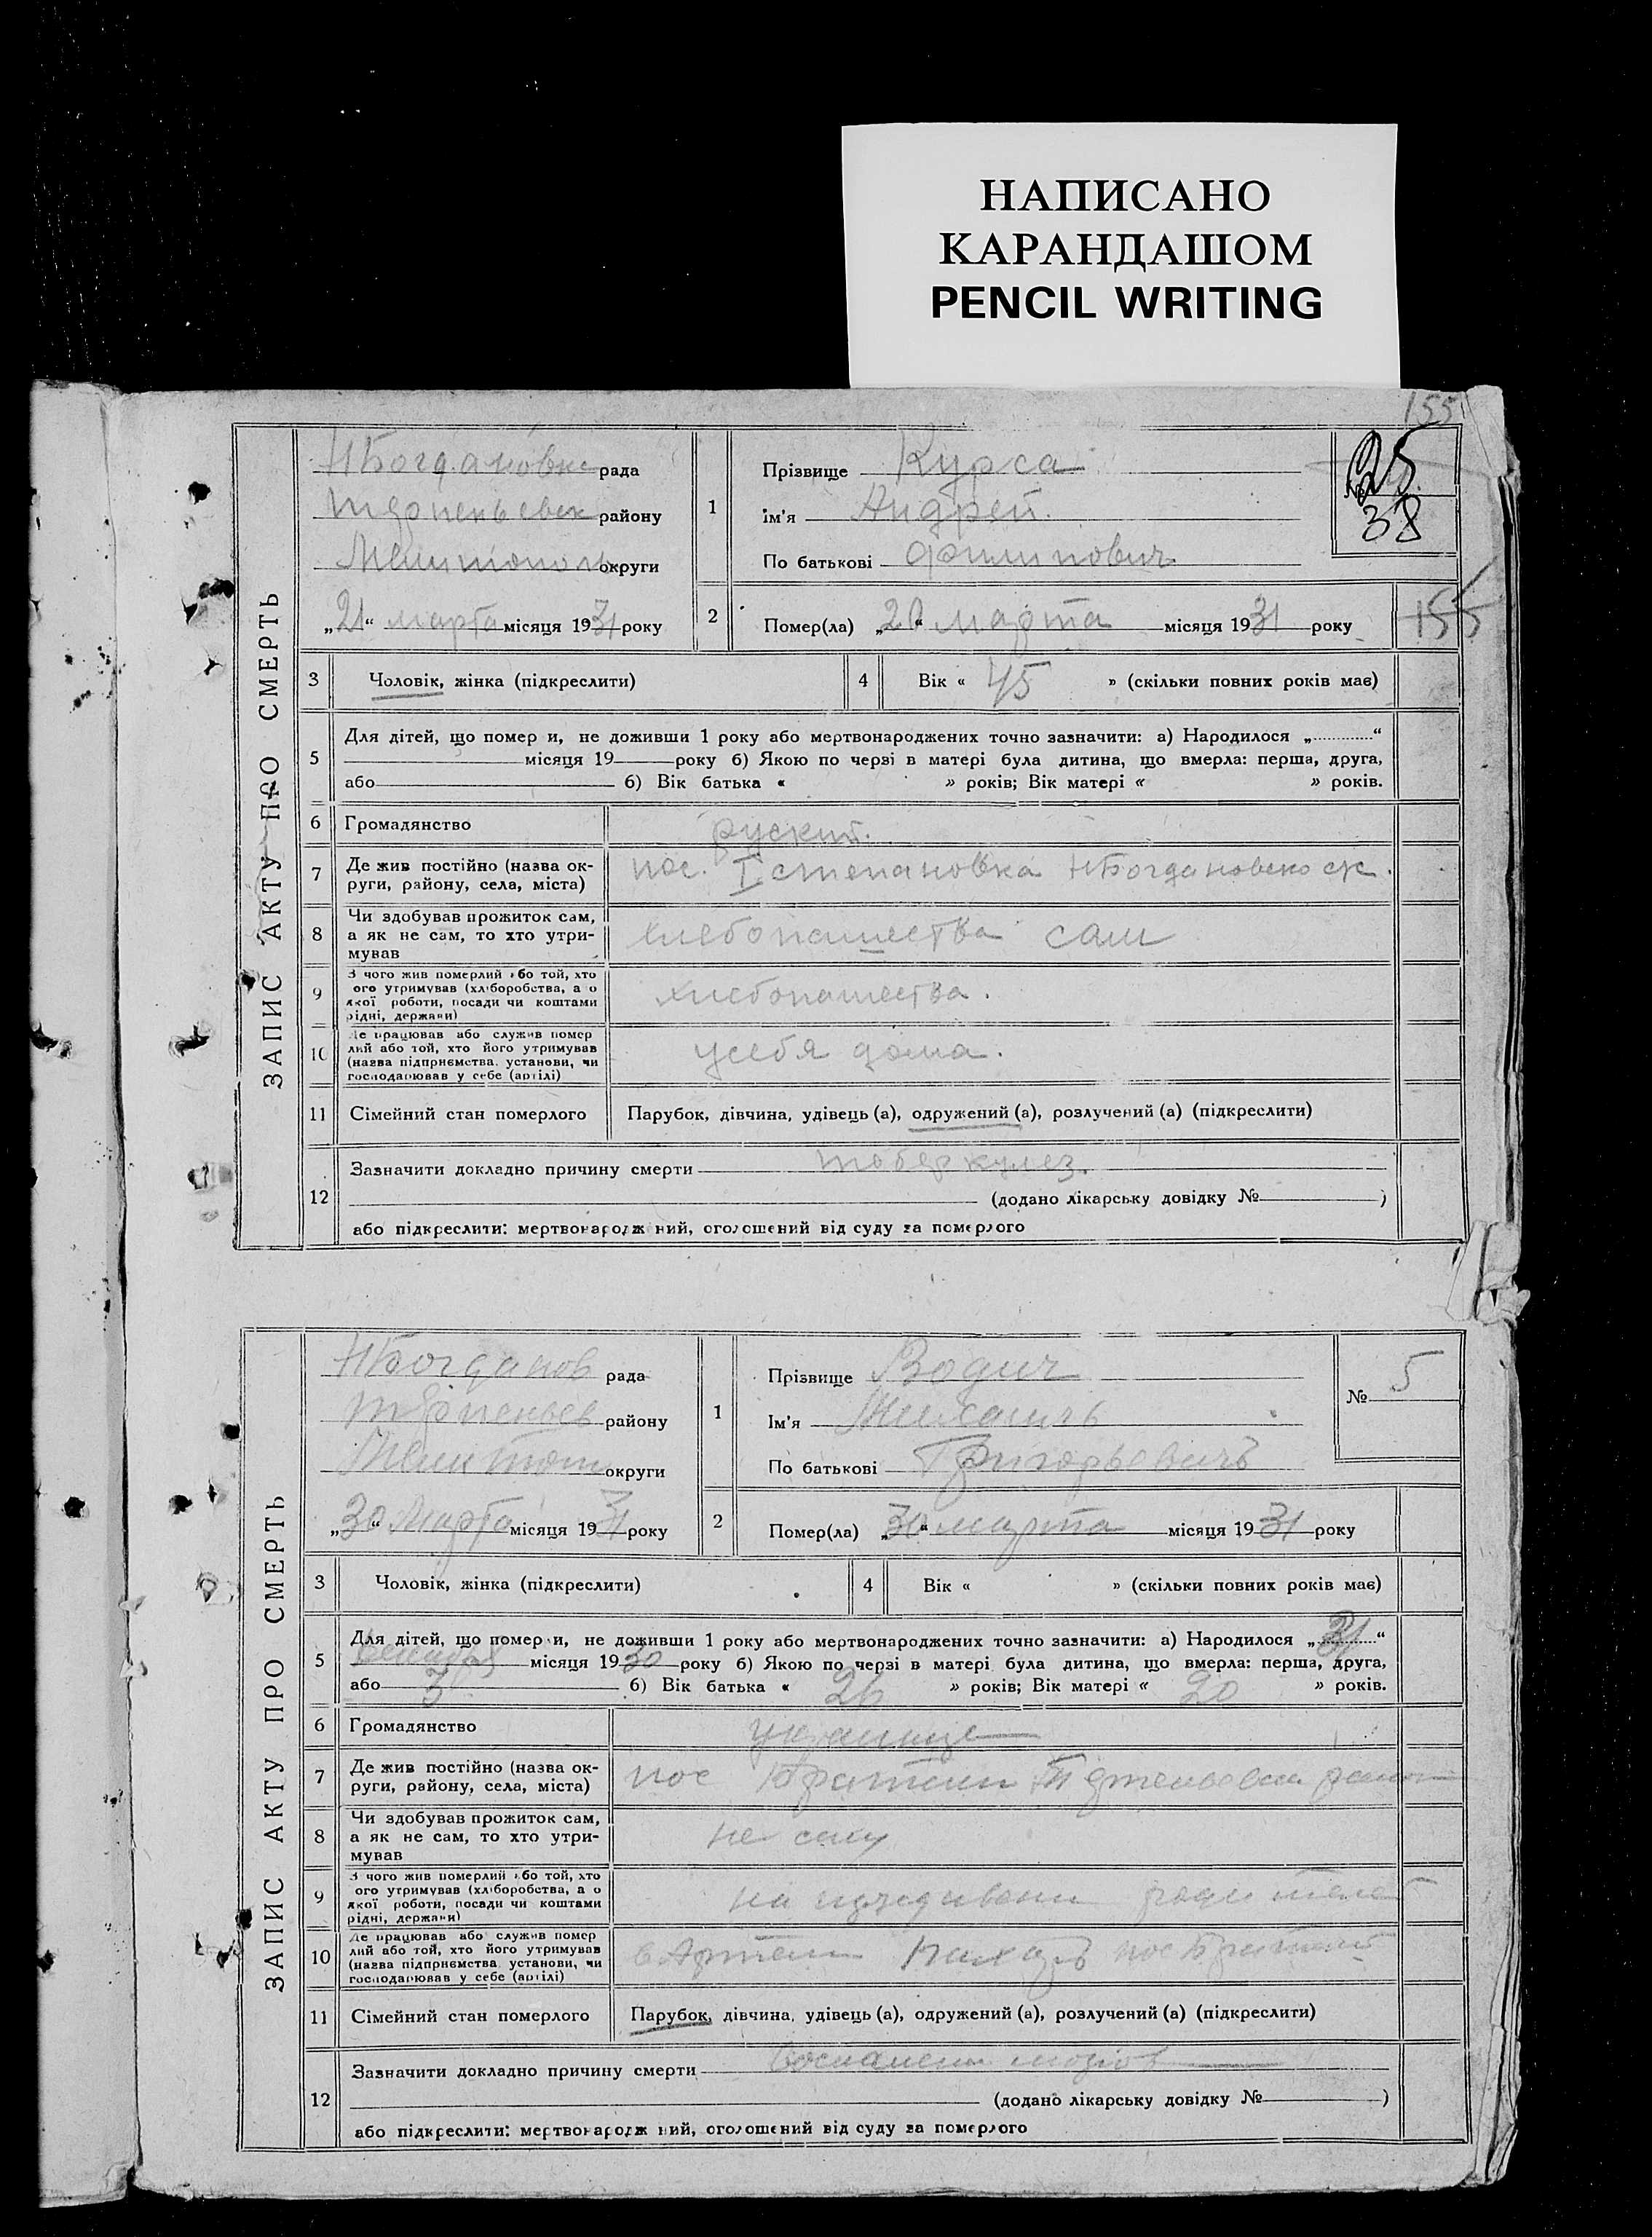 НАПИСАНО
КАРАНДАШОМ
PENCIL WRITING
155
ЗАПИС АКТУ ПРО СМЕРТЬ
НБогдановка рада
району
Мелитополь округи
„21“ марта місяця 1931 року
1
Прізвище Курса
Ім'я Андрей.
По батькові Филипович
25
38
2
Помер(ла) „20“ марта місяця 1931 року
155
3
Чоловік, жінка (підкреслити)
4
Вік « 45 » (скільки повних років має)
5
Для дітей, що помер и, не доживши 1 року або мертвонароджених точно зазначити: а) Народилося „............“
місяця 19 року б) Якою по черзі в матері була дитина, що вмерла: перша, друга,
або б) Вік батька « » років; Вік матері « » років.
6
Громадянство
руский.
7
Де жив постійно (назва ок-
руги, району, села, міста)
пос. I степановка НБогдановско
8
Чи здобував прожиток сам,
а як не сам, то хто утри-
мував
хлебопашества сам
9
З чого жив померлий або той, хто
ого утримував (хліборобства, а о
якої роботи, посади чи коштами
рідні, держави)
хлебопашества.
10
Де працював або служив помер
лий або той, хто його утримував
(назва підприємства, установи, чи
господарював у себе (артілі)
усебя дома.
11
Сімейний стан померлого
Парубок, дівчина, удівець (а), одружений (а), розлучений (а) (підкреслити)
12
Зазначити докладно причину смерти тоберкулез.
(додано лікарську довідку № )
або підкреслити: мертвонародж ний, оголошений від суду за померлого
ЗАПИС АКТУ ПРО СМЕРТЬ
НБогданов рада
району
Мелитоп округи
„30“ Марта місяця 1931 року
1
Прізвище Водич
Ім'я
По батькові Григорьевичъ
№ 5
2
Помер(ла) „30“ марта місяця 1931 року
3
Чоловік, жінка (підкреслити)
4
Вік « » (скільки повних років має)
5
Для дітей, що помер и, не доживши 1 року або мертвонароджених точно зазначити: а) Народилося „31“
декабря місяця 1930 року б) Якою по черзі в матері була дитина, що вмерла: перша, друга,
або 3 б) Вік батька « 26 » років; Вік матері « 20 » років.
6
Громадянство
украинце
7
Де жив постійно (назва ок-
руги, району, села, міста)
пос
8
Чи здобував прожиток сам,
а як не сам, то хто утри-
мував
не сам
9
З чого жив померлий або той, хто
ого утримував (хліборобства, а о
якої роботи, посади чи коштами
рідні, держави)
на иждивени родителей
10
Де працював або служив помер
лий або той, хто його утримував
(назва підприємства, установи, чи
господарював у себе (артілі)
в Артели Пахарь пос
11
Сімейний стан померлого
Парубок, дівчина, удівець (а), одружений (а), розлучений (а) (підкреслити)
12
Зазначити докладно причину смерти воспалени мозгов
(додано лікарську довідку № )
або підкреслити: мертвонародж ний, оголошений від суду за померлого